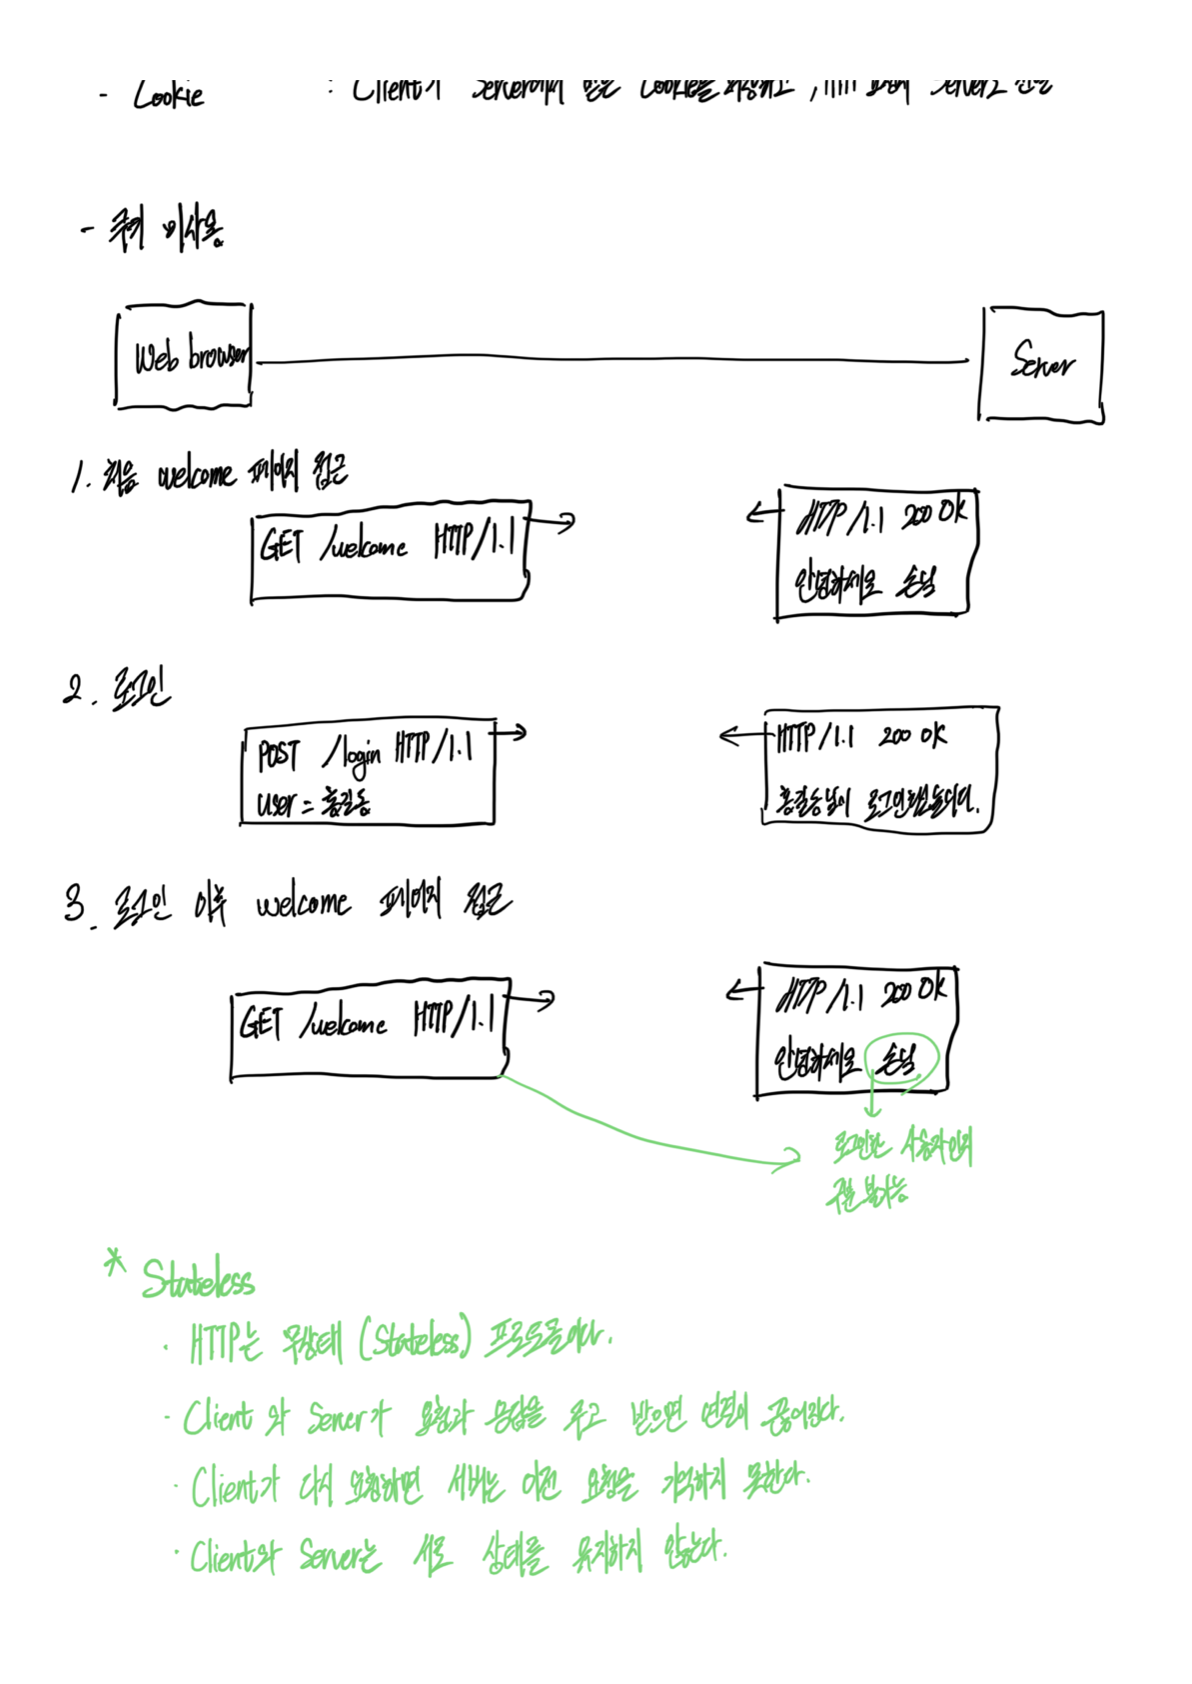 - Cookie : Client가 Server에서 받은 Cookie를 저장하고, HTTP 요청시 Server로 전달
- 쿠키 미사용
Web browser Server
1. 처음 welcome 페이지 접근
GET /welcome HTTP/1.1 HTTP/1.1 200 OK
안녕하세요 손님
2. 로그인
POST /login HTTP/1.1 HTTP/1.1 200 OK
user = 홍길동 홍길동님이 로그인했습니다.
3. 로그인 이후 welcome 페이지 접근
GET /welcome HTTP/1.1 HTTP/1.1 200 OK
안녕하세요 손님
로그인한 사용자인지
구분 불가능
* Stateless
· HTTP는 무상태 (Stateless) 프로토콜이다.
· Client 와 Server가 요청과 응답을 주고 받으면 연결이 끊어진다.
· Client가 다시 요청하면 서버는 이전 요청을 기억하지 못한다.
· Client와 Server는 서로 상태를 유지하지 않는다.